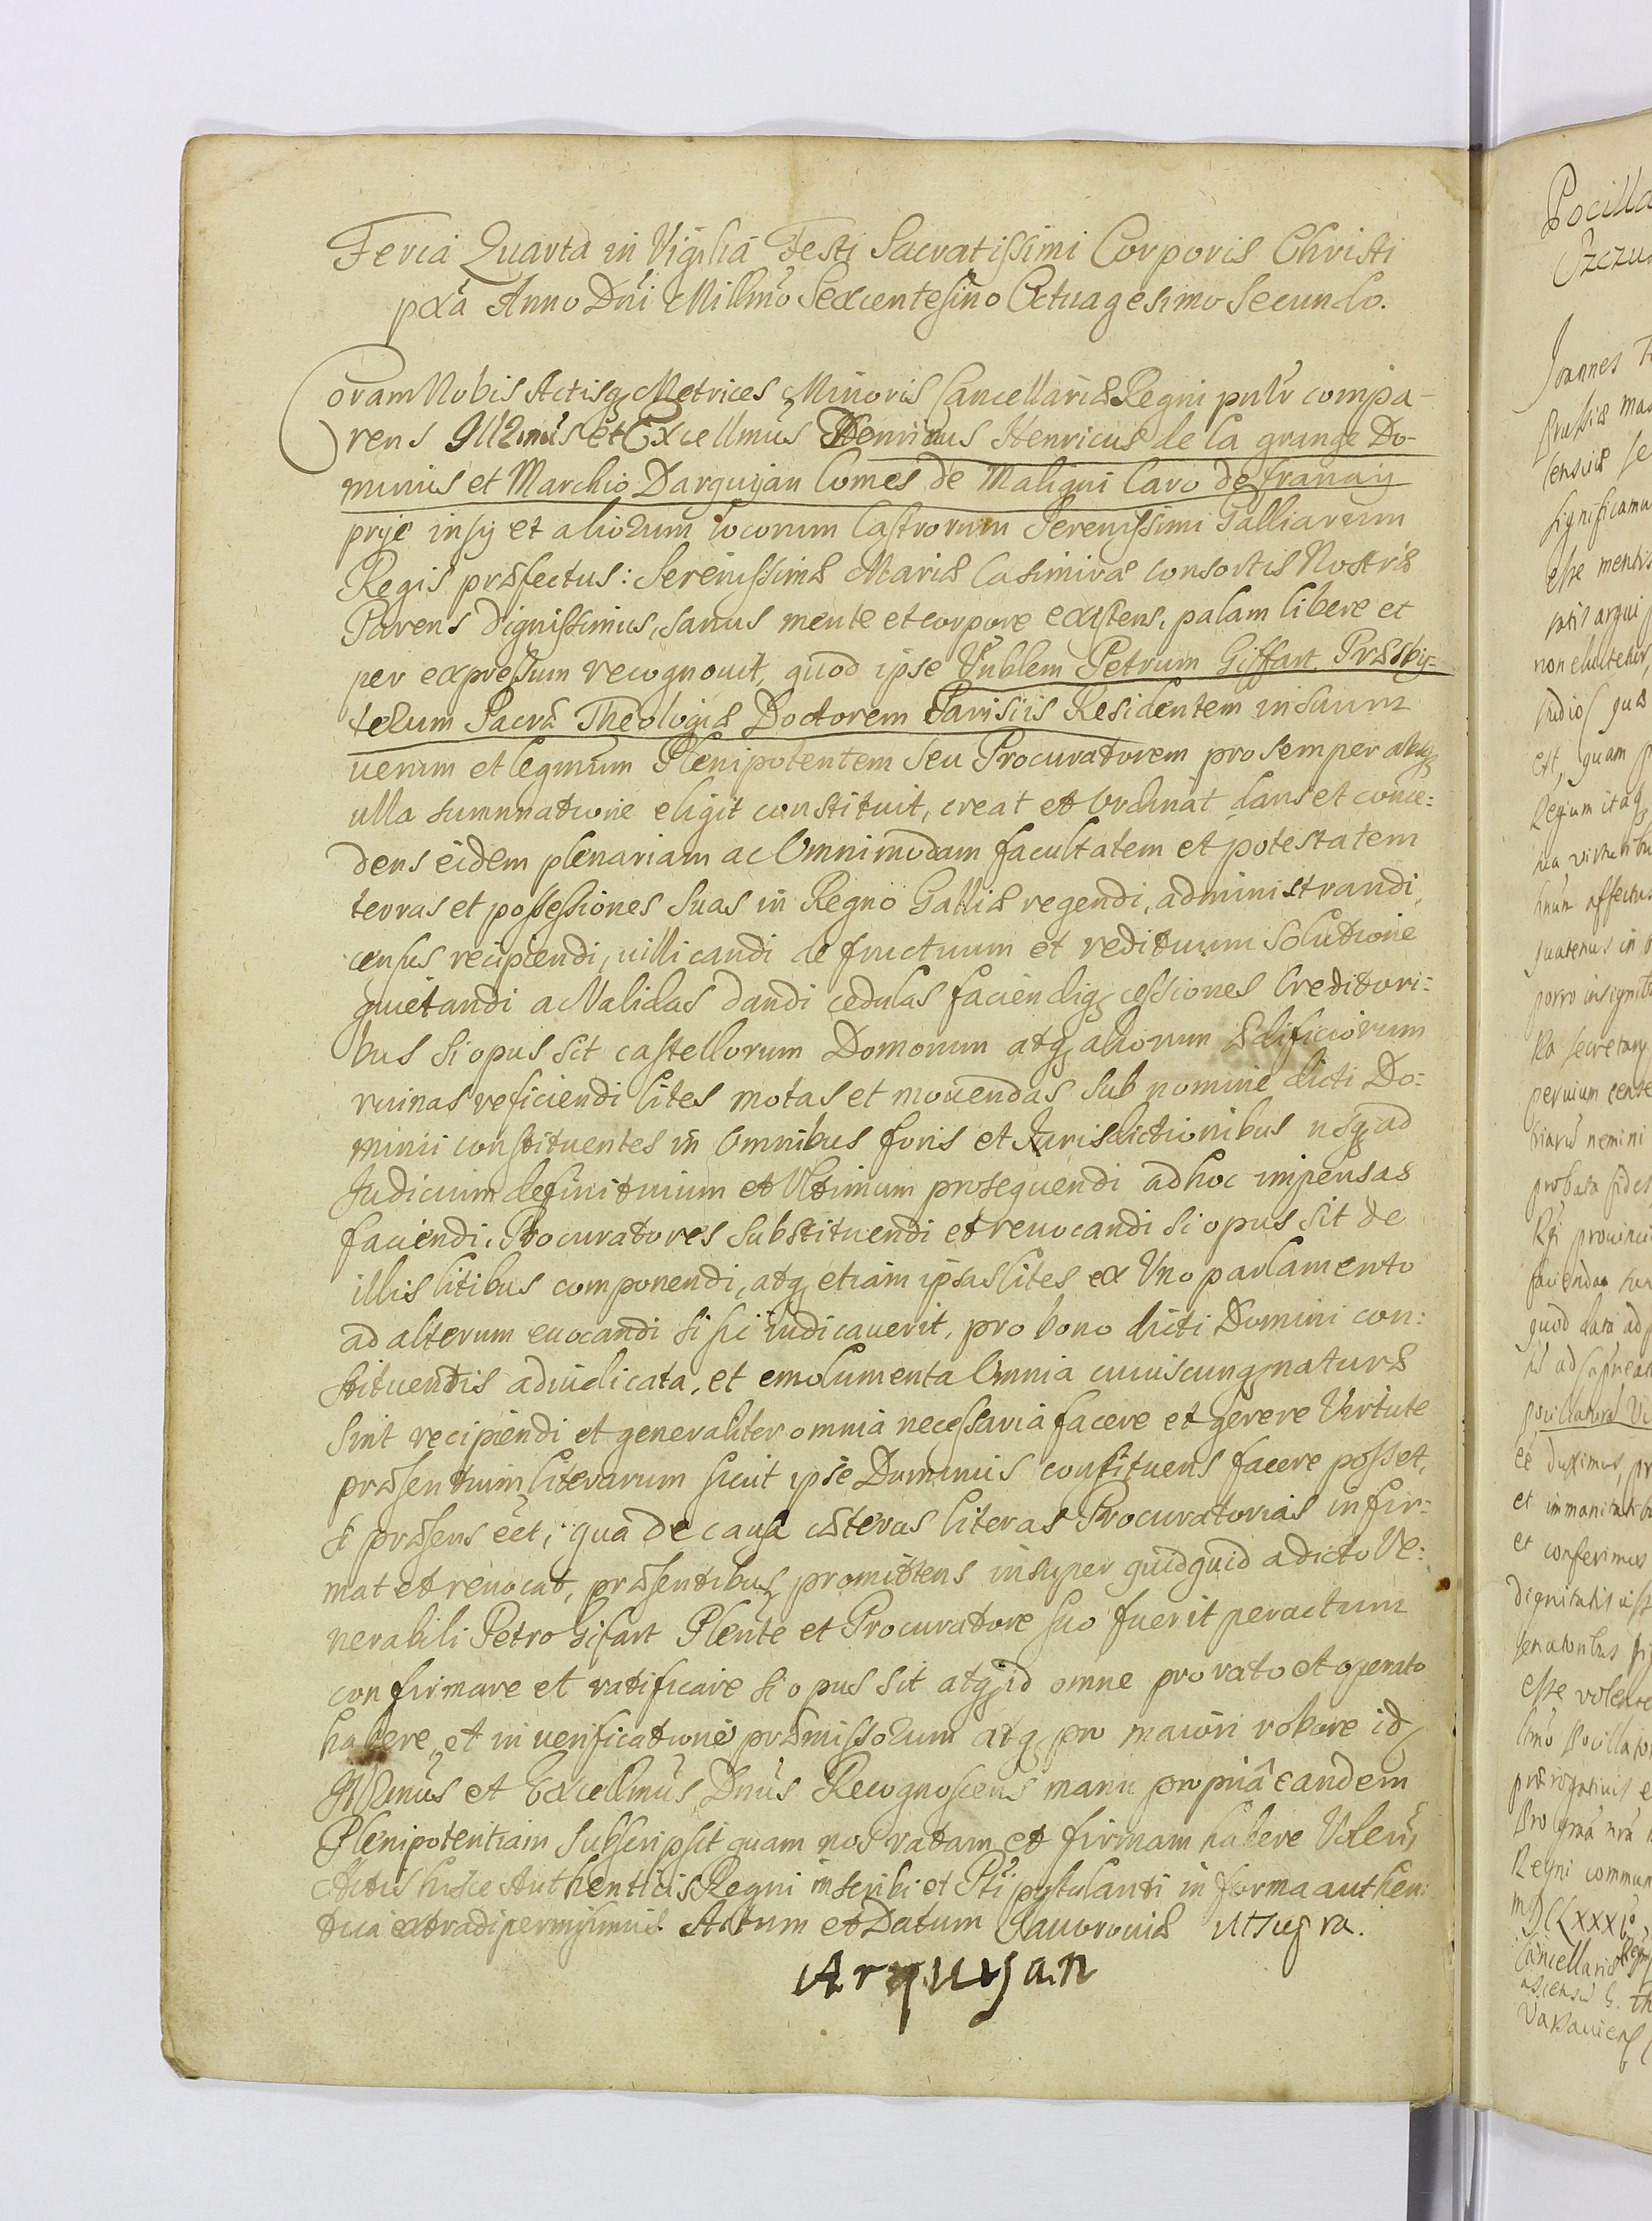 Feria Quarta in Vigilia Festi Sacratissimi Corporis Christi
pxa Anno Dni Millmo Sexcentesimo Octuagesimo Secundo.
Coram Nobis Actisq Metrices Minoris Cancellariæ Regni pntr compa-
rens Illmus et Excellmus Henricus de la grange Do-
minus et Marchio Darquyan Comes de Maligni Caro de franay
prye insy et aliorum locorum Castrorum Serenissimi Galliarum
Regis præfectus: Serenissimæ Mariæ Casimiræ consortis Nostræ
Parens dignissimus, sanus mente et corpore existens, palam libere et
per expressum recognouit, quod ipse Vnblem Petrum Giffart Præsby-
terum Sacræ Theologiæ Doctorem Parisiis Residentem in suum
uerum et legmum Plenipotentem seu Procuratorem pro semper absq
ulla summatione eligit constituit, creat et Ordinat dans et conce-
dens eidem plenariam ac Omnimodam facultatem et potestatem
terras et possessiones suas in Regno Galliæ regendi, administrandi,
census recipiendi, uillicandi de fructuum et redituum solutione
quietandi ac Validas dandi cedulas faciendiq cessiones Creditori-
bus si opus sit castellorum Domorum atq aliorum Ædificiorum
ruinas reficiendi lites motas et mouendas sub nomine dicti Do-
minii constituentes in Omnibus foris et Jurisdictionibus usq ad
Judicium definitiuum et Vltimum prosequendi ad hoc impensas
faciendi, Procuratores substituendi et reuocandi si opus sit de
illis litibus componendi, atq etiam ipsas lites ex Vno parlamento
ad alterum euocandi si sic iudicauerit, pro bono dicti Domini con-
stituentis adiudicata, et emolumenta Omnia cuiuscunq naturæ
sint recipiendi et generaliter omnia necessaria facere et gerere Virtute
præsentium literarum sicut ipse Dominus constituens facere posset,
si præsens eet, qua de causa cæteras literas Procuratorias infir-
mat et reuocat, præsentibus promittens insuper quidquid a dicto Ve-
nerabili Petro Gifart Plente et Procuratore suo fuerit peractum
confirmare et ratificare si opus sit atq id omne pro rato et operato
habere, et in uerificatione præmissorum atq pro maiori robore id
Illmus et Excellmus Dnus Recognoscens manu propriâ eandem
Plenipotentiam subscripsit quam nos ratam et firmam habere Volens
Actis hisce Authenticis Regni inscribi et Pti postulanti in forma authen-
tica extradi permisimus Actum et Datum Iauorouiæ ut supra.
Arquyan